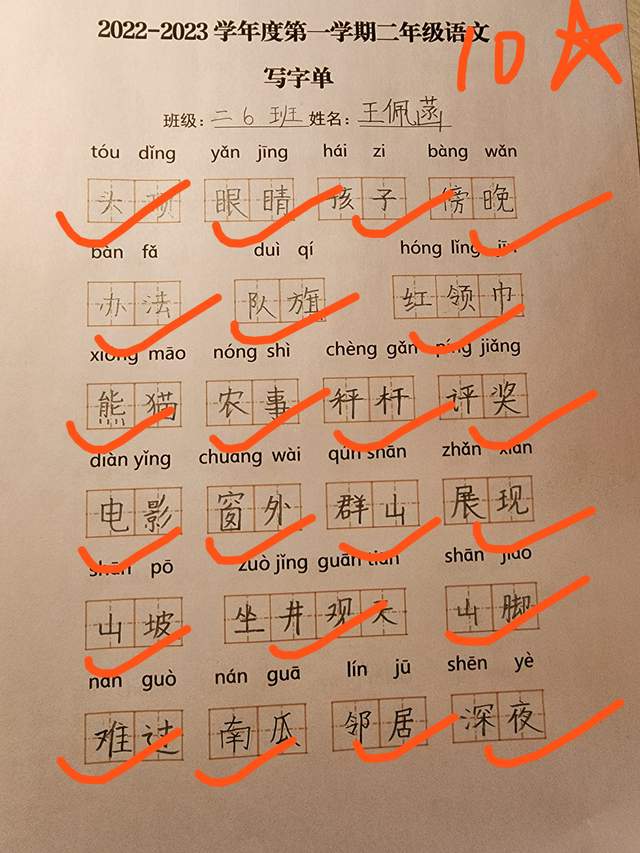 2022-2023 学年度第一学期二年级语文
10
写字单
班级：二6班 姓名：王佩菡
tóu dǐng yǎn jīng hái zi bàng wǎn
头顶 眼睛 孩子 傍晚
bàn fǎ duì qí hóng lǐng jīn
办法 队旗 红领巾
xióng māo nóng shì chèng gǎn píng jiǎng
熊猫 农事 秤杆 评奖
diàn yǐng chuāng wài qún shān zhǎn xiàn
电影 窗外 群山 展现
shān pō zuò jǐng guān tiān shān jiǎo
山坡 坐井观天 山脚
nán guò nán guā lín jū shēn yè
难过 南瓜 邻居 深夜